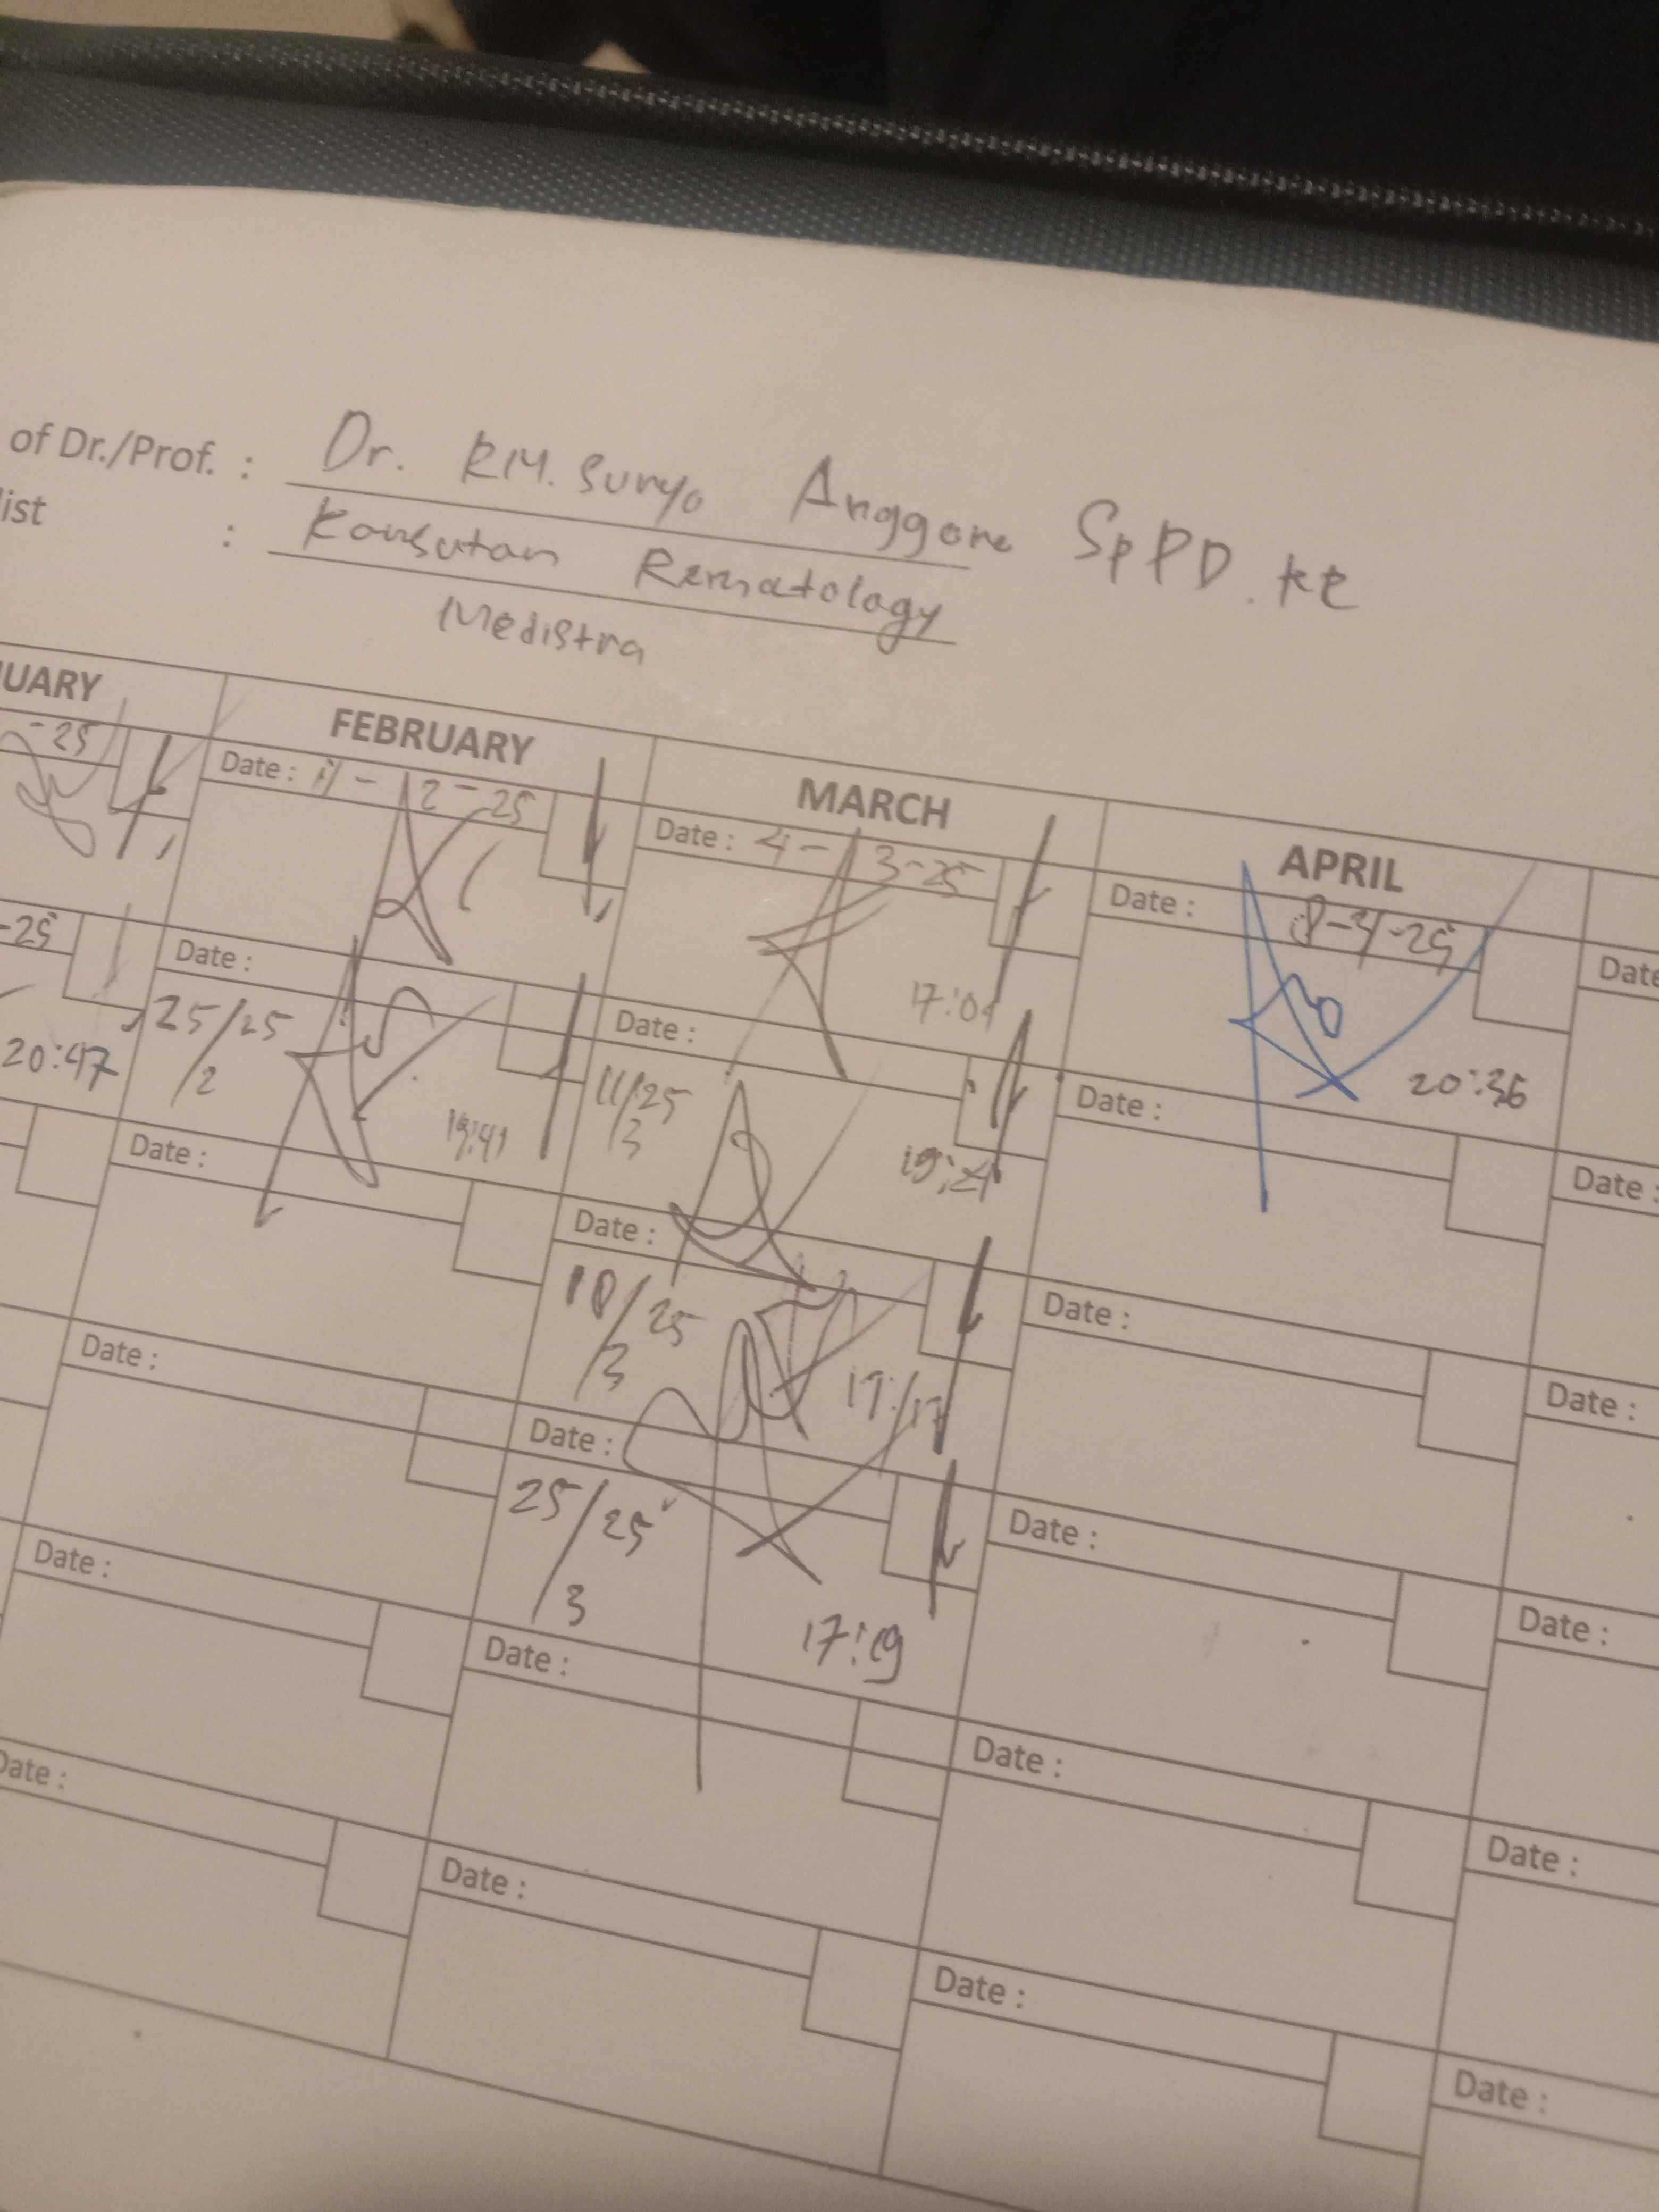 of Dr./Prof. : Dr. RM. Suryo Anggoro SpPD.KR
list : Konsutan Rematology
Medistra
UARY FEBRUARY MARCH APRIL
-25
Date : 11 - 2 - 25
Date : 4 - 3 - 25
17:01
Date : 8-4-25
20:36
Date
-25
20:47
Date :
25/25
/2
19:41
Date :
11/25
/3
Date :
Date :
Date :
Date :
18/25
/3
17:17
Date :
Date :
Date :
Date :
25/25
/3
17:19
Date :
Date :
Date :
Date :
Date :
Date :
Date :
Date :
Date :
Date :